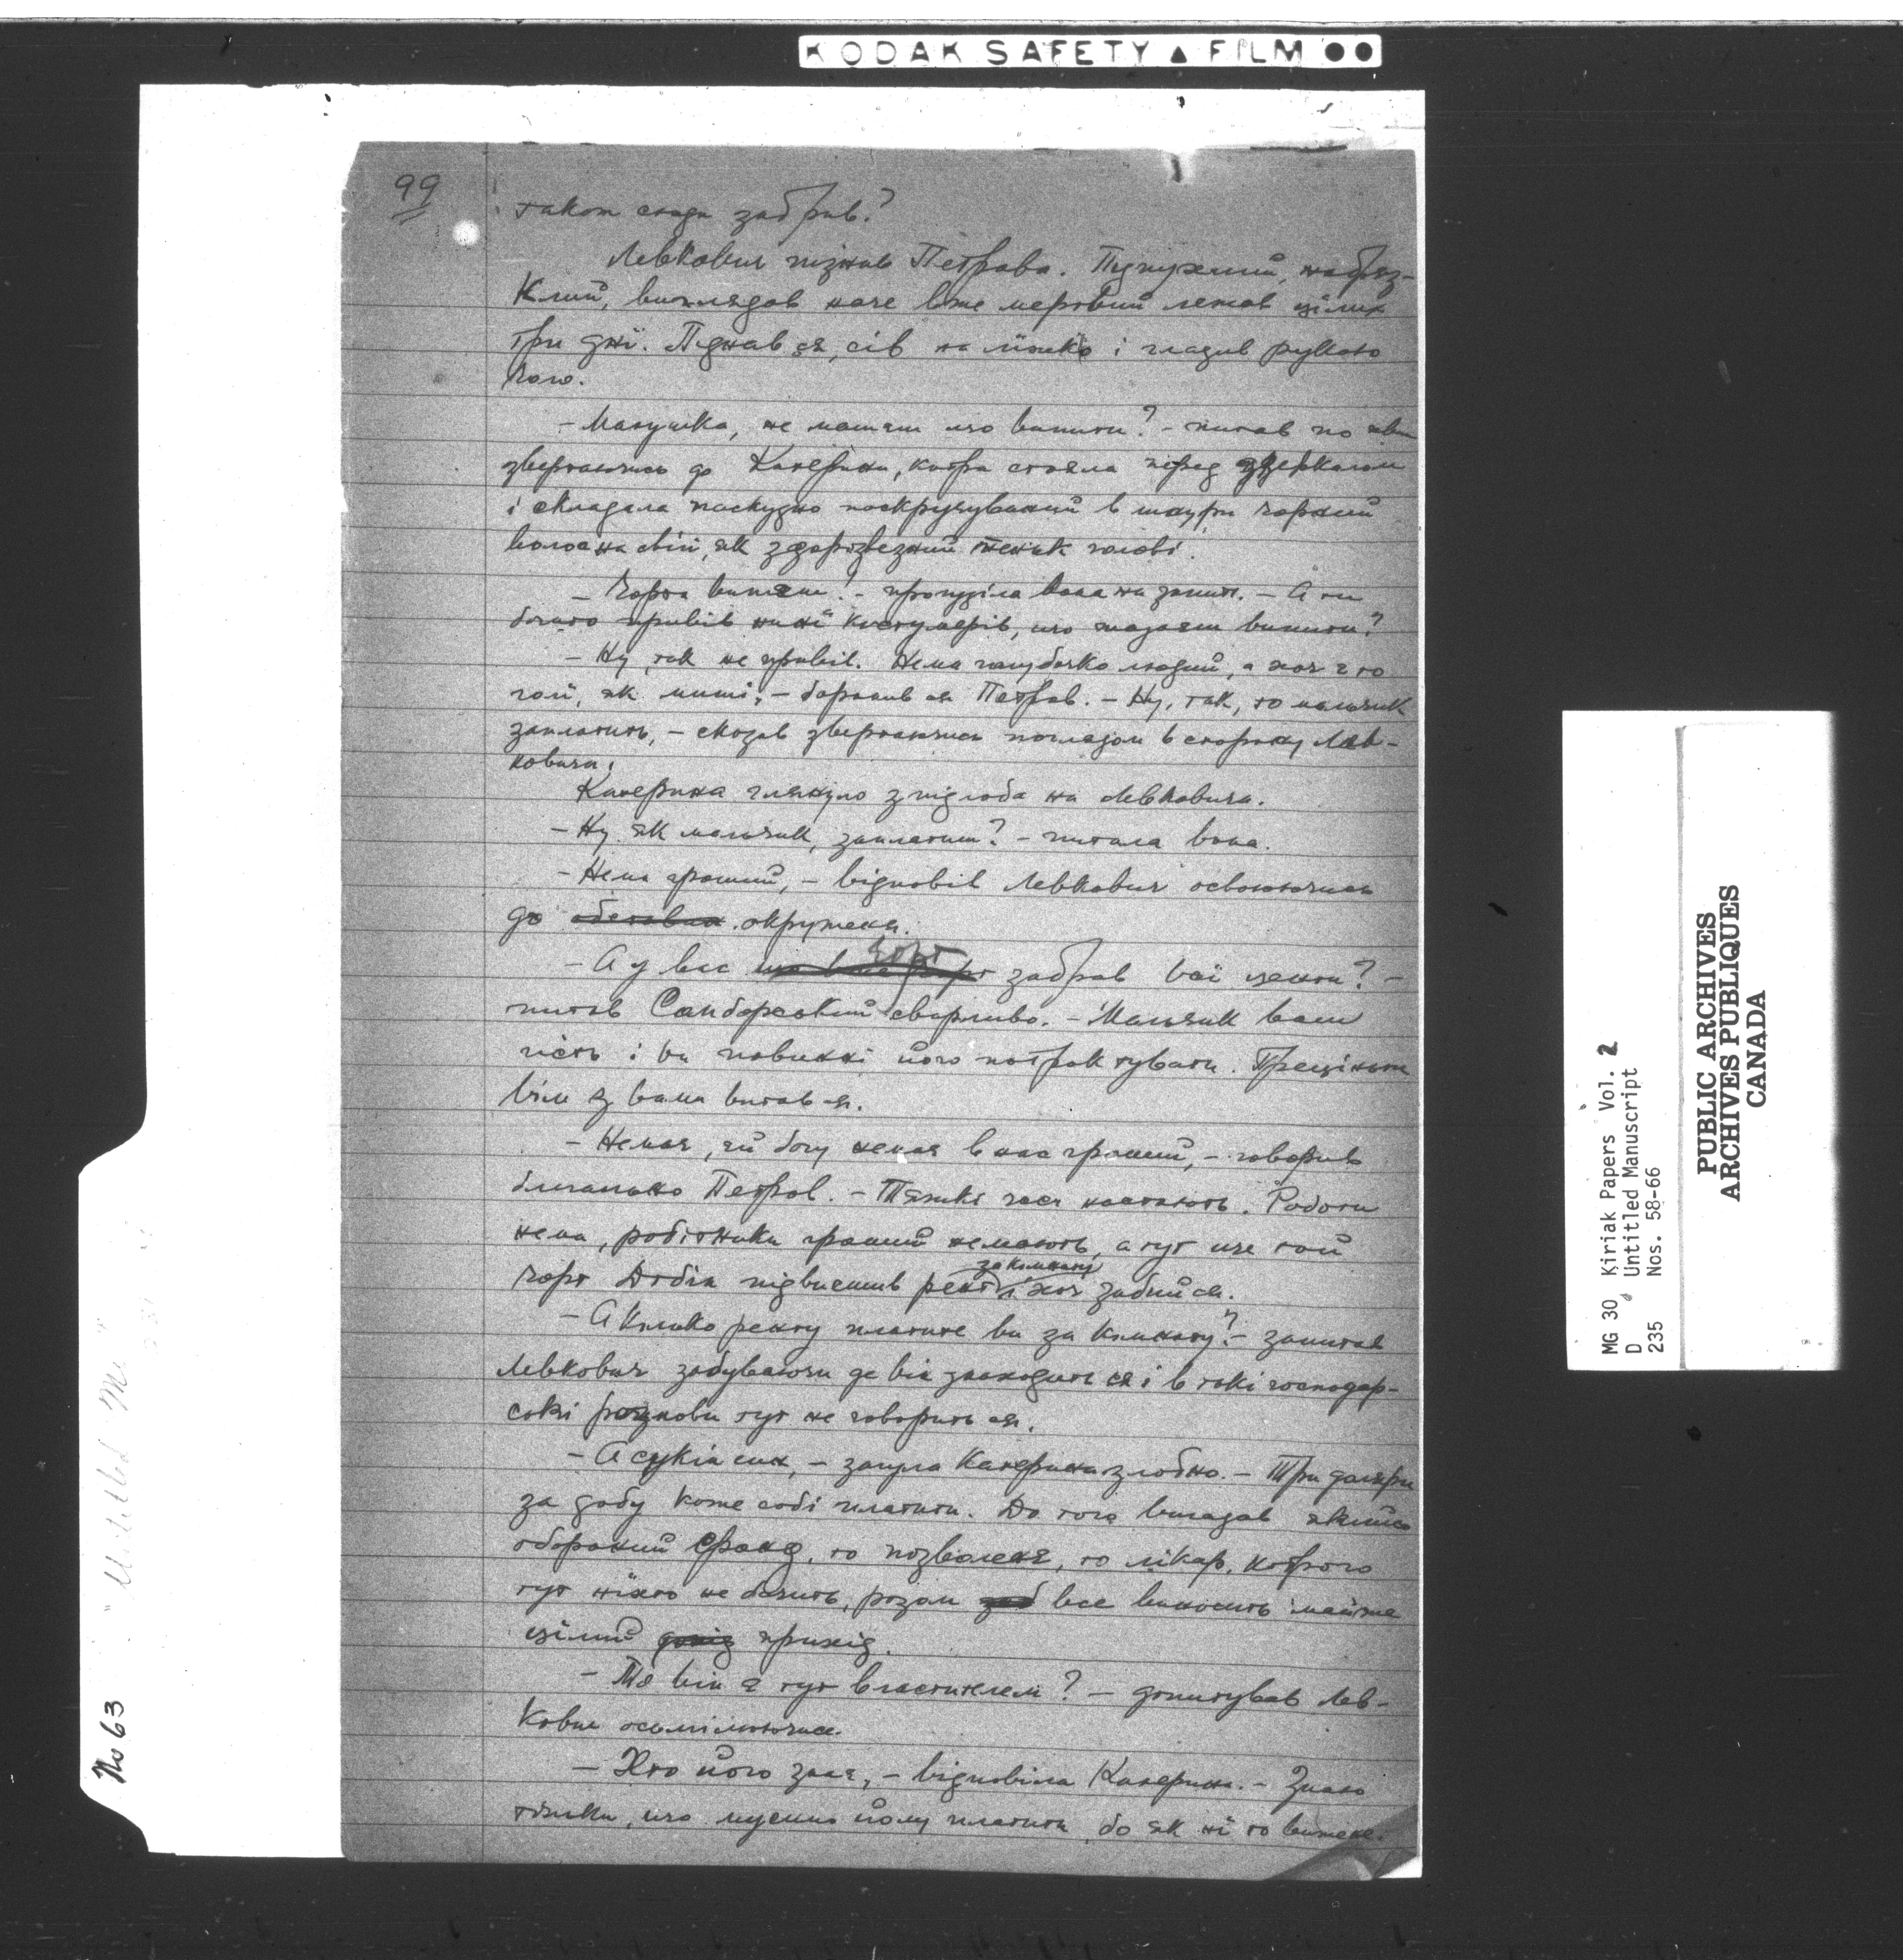 KODAK SAFETY ▲ FILM ●●
99
таком сюди забрив?
Левкович пізнав Петрова. Підпухлий, набряз-
клий, виглядав наче вже мертвий лежав цілих
три дні. Піднявся, сів на ліжко і гладив рукою
чоло.
– Матушка, не маєш що випити? – питав по хвилі
звертаючись до Катерини, котра стояла перед дзеркалом
і складала паскудно поскручуваний в шнури чорний
волос на свій, як здоровезний пеньок голові.
– Чорта випєш! – процідила вона на запит. – А ти
богато привів нині костумерів, що жадаєш випити?
– Ну, так не привів. Нема голубочко людий, а хоч є то
голі, як миші, – боронив ся Петров. – Ну, так, то мальчик
заплатить, – сказав звертаючись поглядом в сторону Лев-
ковича.
Катерина глянуло зпідлоба на Левковича.
– Ну як мальчик, заплатиш? – питала вона.
– Нема гроший, – відповів Левкович освоюючись
до окруженя.
– А у вас чорт забрав всі центи? –
питав Самборський сварливо. – Мальчик ваш
гість і ви повинні його потрактувати. Прецінь
він з вами витав ся.
– Немає, єй богу немає в нас гроший, – говорив
благально Петров. – Тяжкі часи настають. Роботи
нема, робітники гроший немають, а тут ще той
чорт Добін підвисшив рент за кімнату і хоч забий ся.
– А кілько ренту платите ви за кімнату? – запитав
Левкович забуваючи де він знаходить ся і в такі господар-
ські розмови тут не говорить ся.
– А сукін син, – загула Катерина злобно. – Три доляри
за добу каже собі платити. До того вигадав якийсь
оборонний фонд, то позволенє, то лікар, котрого
тут ніхто не бачить, разом все виносить майже
цілий прихід.
– То він є тут властителем? – допитував Лев-
кович осмілюючись.
– Хто його знає, – відповіла Катерина. – Знаю
тілько, що мусимо йому платити, бо як ні то вижене.
No 63
MG 30 Kiriak Papers Vol. 2
D Untitled Manuscript
235 Nos. 58-66
PUBLIC ARCHIVES
ARCHIVES PUBLIQUES
CANADA